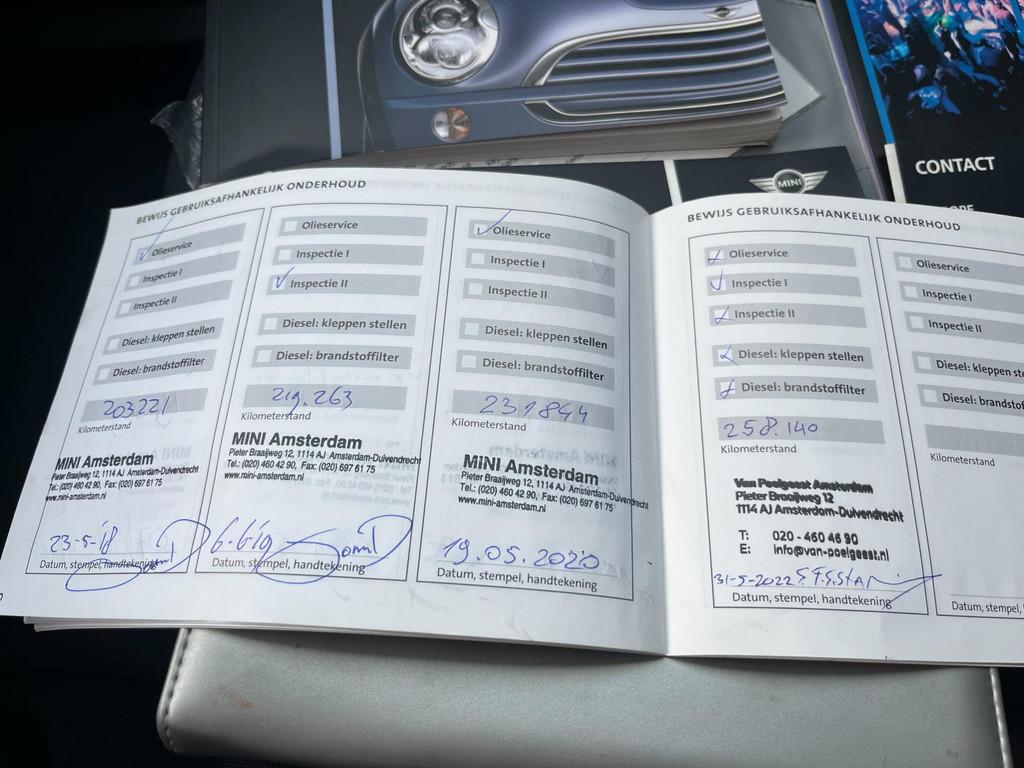 CONTACT
MINI
BEWIJS GEBRUIKSAFHANKELIJK ONDERHOUD
Olieservice
Inspectie I
Inspectie II
Diesel: kleppen stellen
Diesel: brandstoffilter
203221
Kilometerstand
MINI Amsterdam
Pieter Braaijweg 12, 1114 AJ Amsterdam-Duivendrecht
Tel.: (020) 460 42 90, Fax: (020) 697 61 75
www.mini-amsterdam.nl
23-5-18
Datum, stempel, handtekening
Olieservice
Inspectie I
Inspectie II
Diesel: kleppen stellen
Diesel: brandstoffilter
219.263
Kilometerstand
MINI Amsterdam
Pieter Braaijweg 12, 1114 AJ Amsterdam-Duivendrecht
Tel.: (020) 460 42 90, Fax: (020) 697 61 75
www.mini-amsterdam.nl
6-6-19
Datum, stempel, handtekening
Olieservice
Inspectie I
Inspectie II
Diesel: kleppen stellen
Diesel: brandstoffilter
231844
Kilometerstand
MINI Amsterdam
Pieter Braaijweg 12, 1114 AJ Amsterdam-Duivendrecht
Tel.: (020) 460 42 90, Fax: (020) 697 61 75
www.mini-amsterdam.nl
19.05.2020
Datum, stempel, handtekening
BEWIJS GEBRUIKSAFHANKELIJK ONDERHOUD
Olieservice
Inspectie I
Inspectie II
Diesel: kleppen stellen
Diesel: brandstoffilter
258.140
Kilometerstand
Van Poelgeest Amsterdam
Pieter Braaijweg 12
1114 AJ Amsterdam-Duivendrecht
T: 020 - 460 46 90
E: info@van-poelgeest.nl
31-5-2022
Datum, stempel, handtekening
Olieservice
Inspectie I
Inspectie II
Diesel: kleppen ste
Diesel: brandstof
Kilometerstand
Datum, stempel,